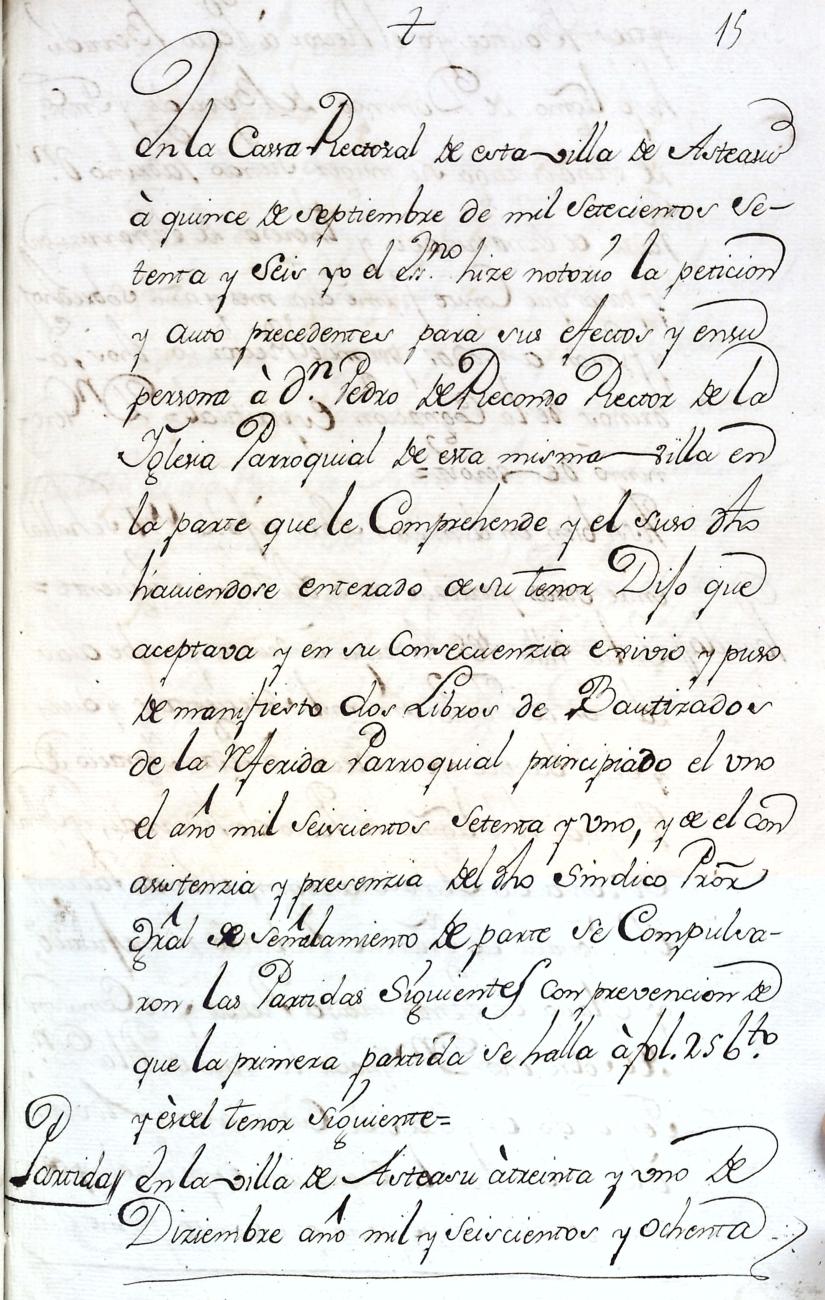 † 15
En la Cassa Rectoral de esta villa de Asteasu
à quince de septiembre de mil setecientos se-
tenta y seis yo el Essno. hize notorio la peticion
y auto precedentes para sus efectos y en su
persona à Dn. Pedro de Recondo Rector de la
Iglesia Parroquial de esta misma villa en
la parte que le Comprehende y el suso dho
haviendose enterado de su tenor Dijo que
aceptava y en su Consecuenzia exivio y puso
de manifiesto dos Libros de Bautizados
de la referida Parroquial principiado el uno
el año mil seiscientos setenta y uno, y de el con
asistenzia y presenzia del dho Sindico Pror
Gral de señalamiento de parte se Compulsa-
ron, las Partidas Siguientes con prevencion de
que la primera partida se halla à fol. 256 bto.
y es del tenor siguiente=
Partida
En la villa de Asteasu à treinta y uno de
Diziembre año mil y seiscientos y ochenta